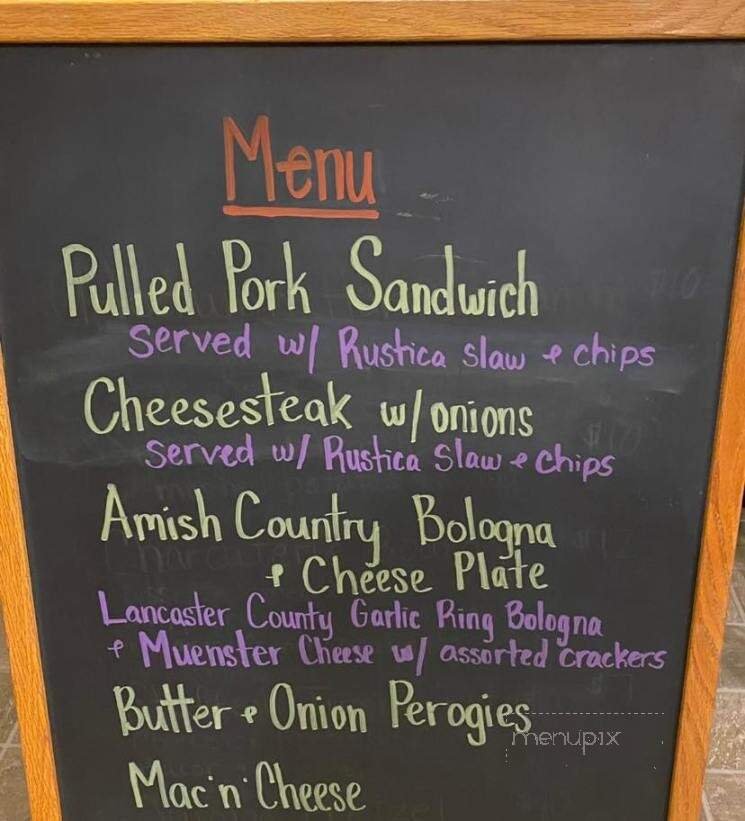 Menu
Pulled Pork Sandwich
Served w/ Rustica slaw & chips
Cheesesteak w/onions
Served w/ Rustica Slaw & Chips
Amish Country Bologna
& Cheese Plate
Lancaster County Garlic Ring Bologna
& Muenster Cheese w/ assorted crackers
Butter & Onion Perogies
menupix
Mac'n'Cheese